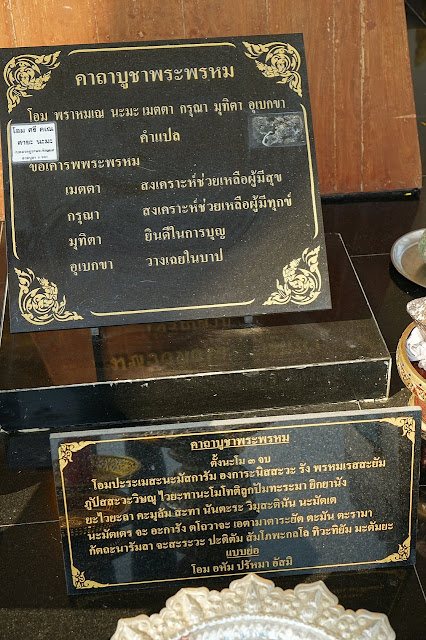 คาถาบูชาพระพรหม
โอม พราหมเณ นะมะ เมตตา กรุณา มุทิตา อุเบกขา
คำแปล
ขอเคารพพระพรหม
เมตตา สงเคราะห์ช่วยเหลือผู้มีสุข
กรุณา สงเคราะห์ช่วยเหลือผู้มีทุกข์
มุทิตา ยินดีในการบุญ
อุเบกขา วางเฉยในบาป
โอม ศรี คเณ
ศายะ นะมะ
คาถาบูชาพระพรหม
ตั้งนะโม ๓ จบ
โอมปะระเมสะนะมัสการัม องการะนิสสะวะ รัง พรหมเรสสะยัม
ภูปัสสะวะวิษณุ ไวยะทานะโมโทติลูกปัมทะระมา ยิกยานัง
ยะไวยะลา คะมุลัม สะทา นันตะระ วิมุสะตินัน นะมัตเต
นะมัตเตร จะ อะการัง ตโถวาจะ เอตามาตาระยัต ตะมัน ตะรามา
กัตถะนารัมลา จะสะระวะ ปะติตัม สัมโภพะกลโล ทิวะทิยัม มะตัมยะ
แบบย่อ
โอม อหัม ปรัหมา อัสมิ